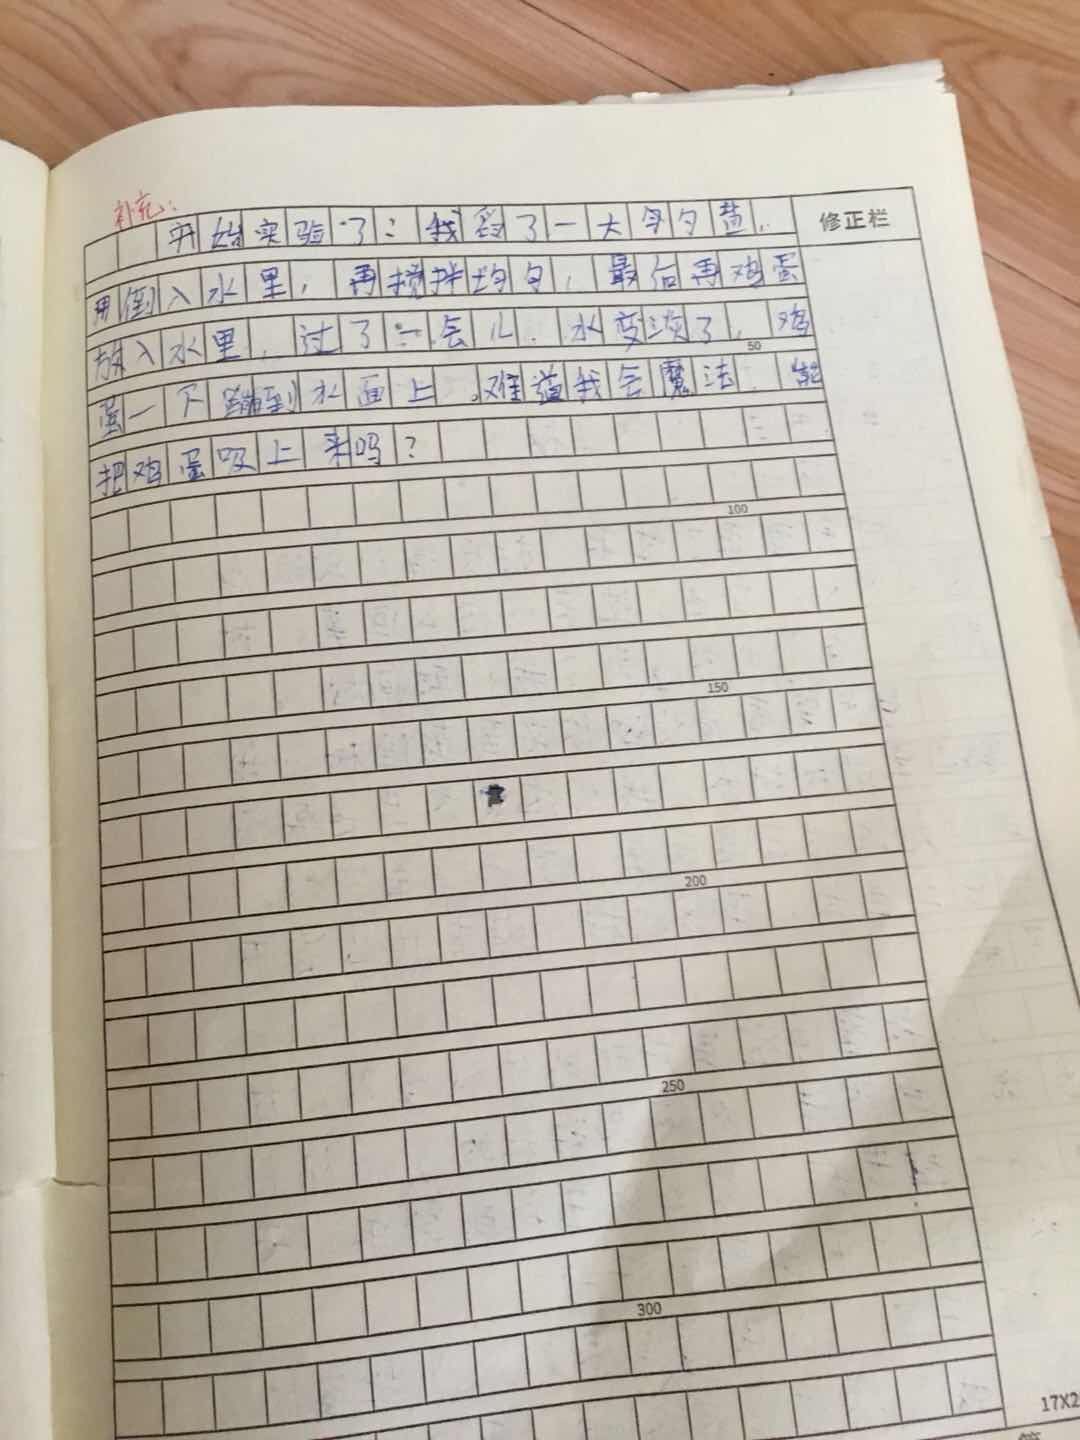 补充：
开始实验了：我舀了一大勺勺盐，
再倒入水里，再搅拌均匀，最后再鸡蛋
放入水里，过了一会儿，水变淡了，鸡
50
蛋一下蹦到水面上。难道我会魔法，能
把鸡蛋吸上来吗？
修正栏
100
150
200
250
300
17X2